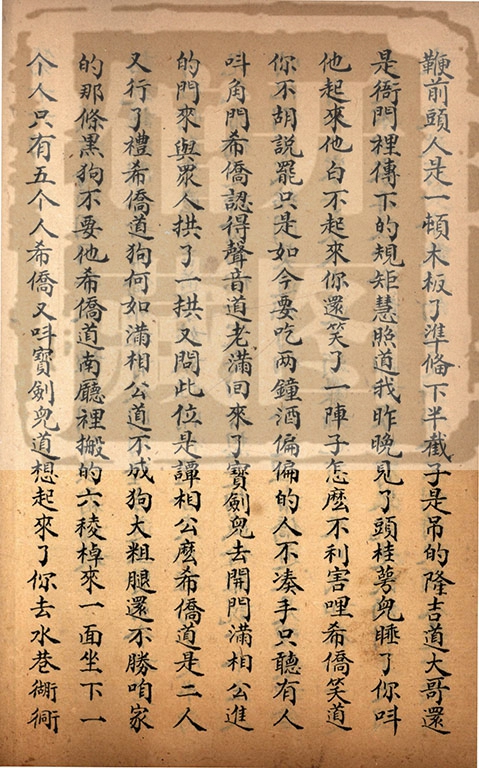 鞭前頭人是一頓木板了準俻下半截子是吊的隆吉道大哥還
是衙門裡傳下的規矩慧照道我昨晚見了頭桂萼兒睡了你呌
他起來他白不起來你還笑了一陣子怎麽不利害哩希僑笑道
你不胡說罷只是如今要吃两鐘酒偏偏的人不凑手只聽有人
呌角門希僑認得聲音道老滿回來了寶劍兒去開門滿相公進
的門來與眾人拱了一拱又問此位是譚相公麽希僑道是二人
又行了禮希僑道狗何如滿相公道不成狗大粗腿還不勝咱家
的那條黑狗不要他希僑道南廳裡搬的六稜棹來一面坐下一
个人只有五个人希僑又呌寶劍兒道想起來了你去水巷衚衕